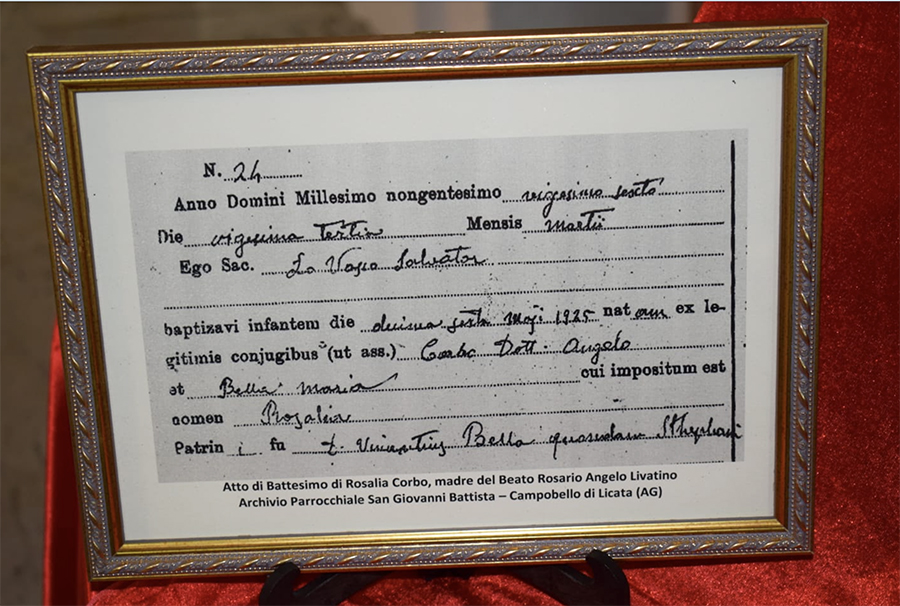 N. 24
Anno Domini Millesimo nongentesimo vigesimo sexto
Die vigesima tertia Mensis martii
Ego Sac. Lo Vasco Salvator
baptizavi infantem die decima sexta Maji 1925 nat am ex le-
gitimis conjugibus (ut ass.) Corbo Dott. Angelo
et Bella Maria cui impositum est
nomen Rosalia
Patrin i fu Bella quondam Stephani
Atto di Battesimo di Rosalia Corbo, madre del Beato Rosario Angelo Livatino
Archivio Parrocchiale San Giovanni Battista – Campobello di Licata (AG)